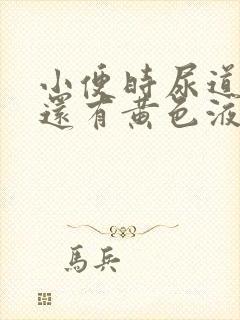 小便時尿道
還有黃色液
馬兵